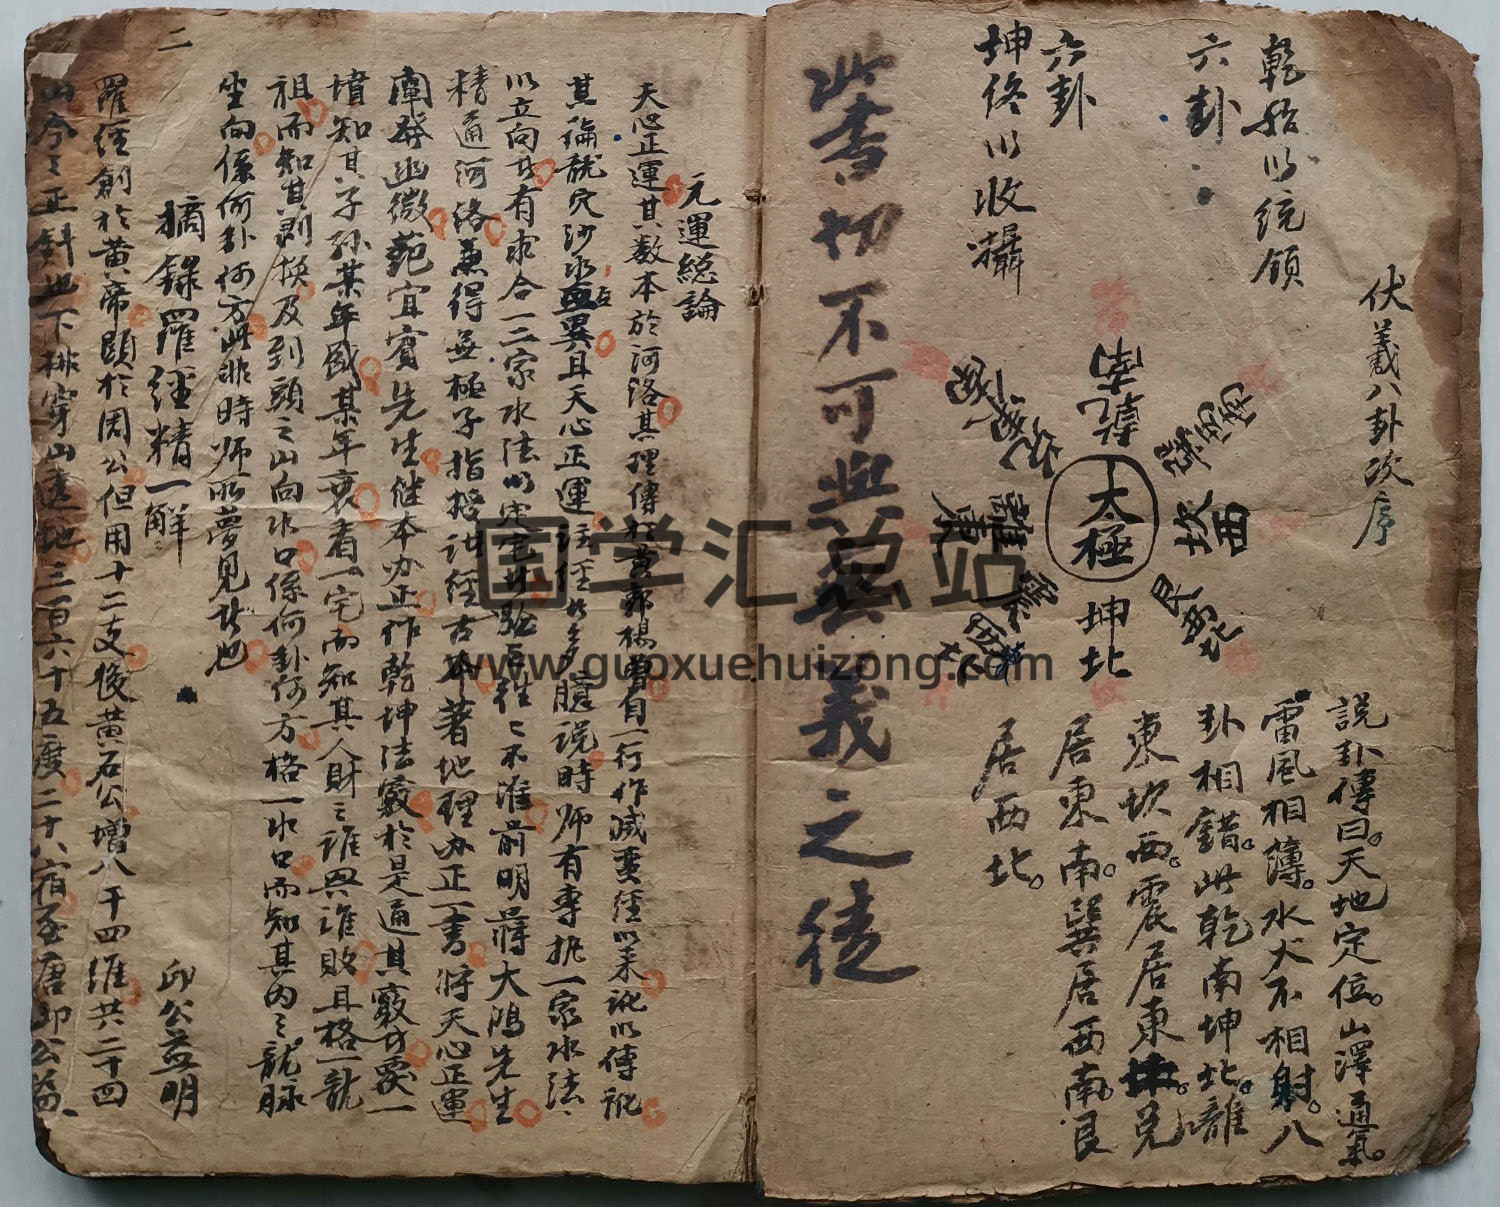 伏羲八卦次序
乾始以統領
六卦
坤终以收攝
六卦
乾南
兌東南
離東
震東北
巽西南
坎西
艮西北
坤北
太極
說卦傳曰。天地定位。山澤通氣。
雷風相簿。水火不相射。八
卦相錯。此乾南坤北。離
東坎西。震居東北。兌
居東南。巽居西南。艮
居西北。
此書切不可與無義之徒
元運総論
天心正運其数本於河洛其理傳於黃郭楊曾自一行作滅蠻經以来訛以傳訛
其倫龍穴沙水各異且天心正運註經者多臆說時师有專執一家水法
以立向者有牽合一二家水法以定宅者驗否往々不準前明蔣大鴻先生
精通河洛兼得無極子指授註經古本著地理办正一書將天心正運
闡發幽微范宜賓先生继本办正作乾坤法竅於是通其竅者覆一
墳知其子孙某年盛某年衰看一宅而知其人財之誰興誰敗且格一龍
祖而知其剥换及到頭之山向水口係何卦何方格一水口而知其内之龍脉
坐向係何卦何方此非時师所夢見者也
摘錄羅经精一解
邱公益明
羅經創於黄帝顕於周公但用十二支後黄石公增八干四維共二十四
山今之正針也下排穿山透地三百六十五度二十八宿至唐邱公益
二
国学汇总站
www.guoxuehuizong.com